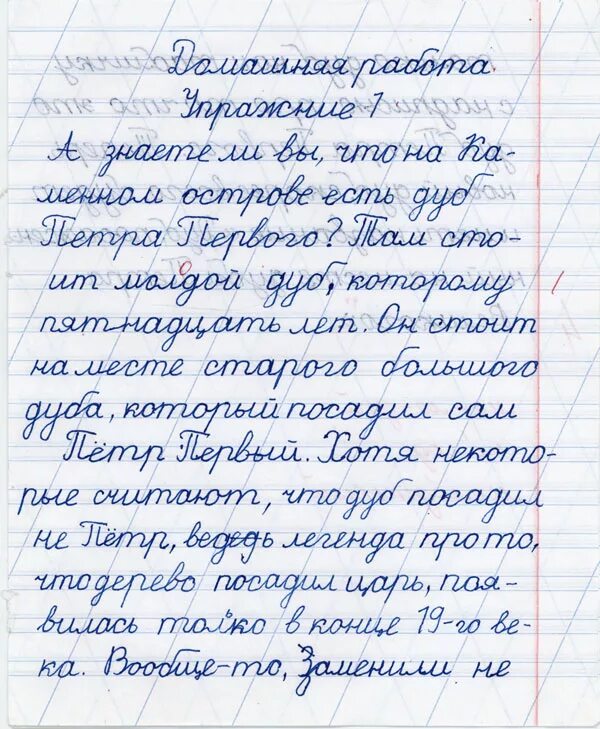 Домашняя работа.
Упражние 1
А знаете ли вы, что на Ка-
менном острове есть дуб
Петра Первого? Там сто-
ит молодой дуб, которому
пятнадцать лет. Он стоит
на месте старого большого
дуба, который посадил сам
Пётр Первый. Хотя некото-
рые считают, что дуб посадил
не Пётр, ведь легенда про то,
что дерево посадил царь, поя-
вилась только в конце 19-го ве-
ка. Вообще-то, заменили не